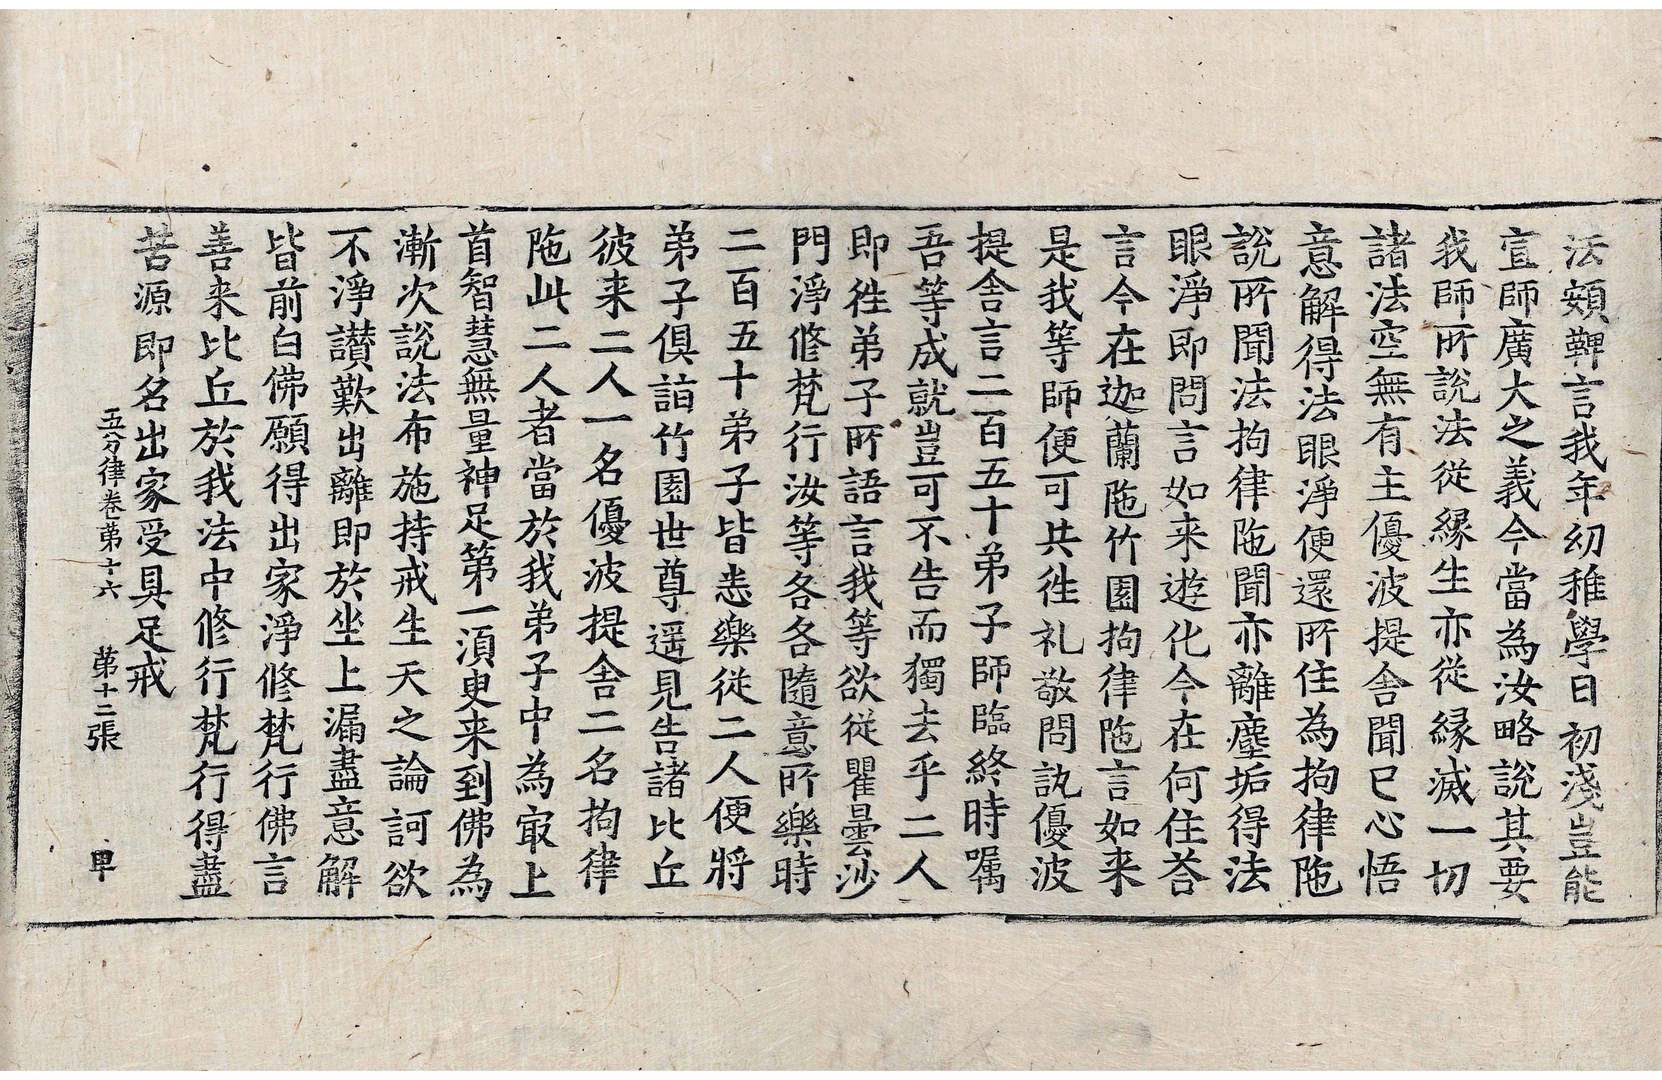 法頞鞞言我年幼稚學日初淺豈能
宣師廣大之義今當為汝略說其要
我師所說法從緣生亦從緣滅一切
諸法空無有主優波提舍聞已心悟
意解得法眼淨便還所住為拘律陁
說所聞法拘律陁聞亦離塵垢得法
眼淨即問言如来遊化今在何住荅
言今在迦蘭陁竹園拘律陁言如来
是我等師便可共往礼敬問訊優波
提舍言二百五十弟子師臨終時囑
吾等成就豈可不告而獨去乎二人
即往弟子所語言我等欲從瞿曇沙
門淨修梵行汝等各各隨意所樂時
二百五十弟子皆悉樂從二人便將
弟子俱詣竹園世尊遥見告諸比丘
彼来二人一名優波提舍二名拘律
陁此二人者當於我弟子中為㝡上
首智慧無量神足第一須臾来到佛為
漸次說法布施持戒生天之論訶欲
不淨讃歎出離即於坐上漏盡意解
皆前白佛願得出家淨修梵行佛言
善来比丘於我法中修行梵行得盡
苦源即名出家受具足戒
五分律卷第十六 第十二張 卑